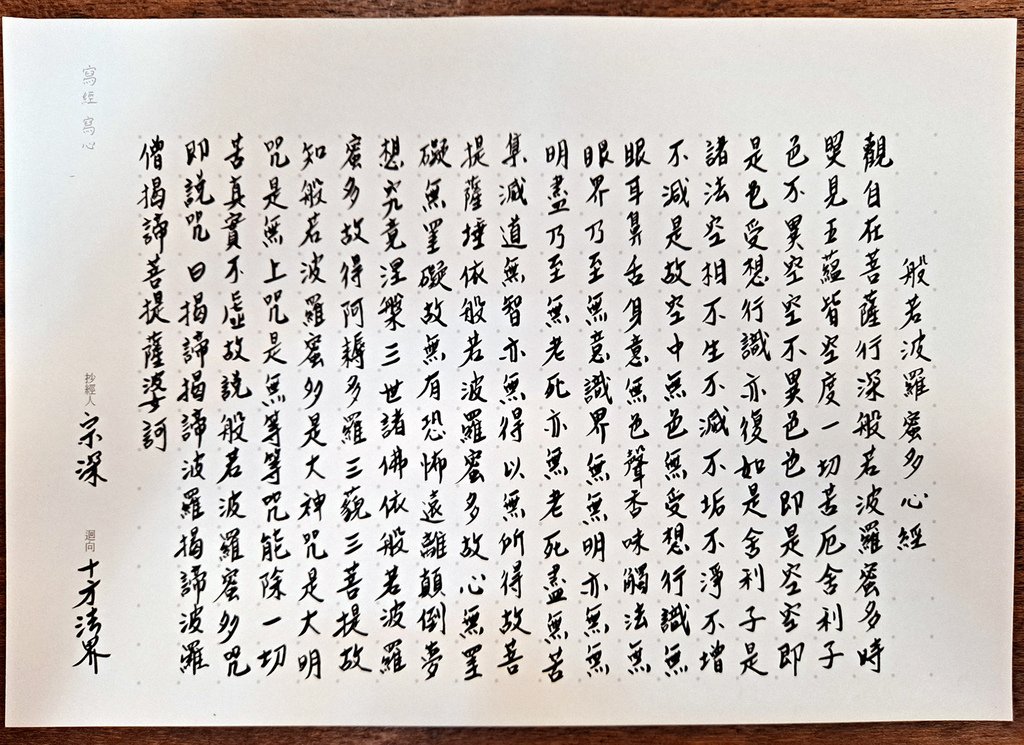 般若波羅蜜多心經
觀自在菩薩行深般若波羅蜜多時
照見五蘊皆空度一切苦厄舍利子
色不異空空不異色色即是空空即
是色受想行識亦復如是舍利子是
諸法空相不生不滅不垢不淨不增
不減是故空中無色無受想行識無
眼耳鼻舌身意無色聲香味觸法無
眼界乃至無意識界無無明亦無無
明盡乃至無老死亦無老死盡無苦
集滅道無智亦無得以無所得故菩
提薩埵依般若波羅蜜多故心無罣
礙無罣礙故無有恐怖遠離顛倒夢
想究竟涅槃三世諸佛依般若波羅
蜜多故得阿耨多羅三藐三菩提故
知般若波羅蜜多是大神咒是大明
咒是無上咒是無等等咒能除一切
苦真實不虛故說般若波羅蜜多咒
即說咒曰揭諦揭諦波羅揭諦波羅
僧揭諦菩提薩婆訶
寫經 寫心
抄經人 宗深 迴向 十方法界